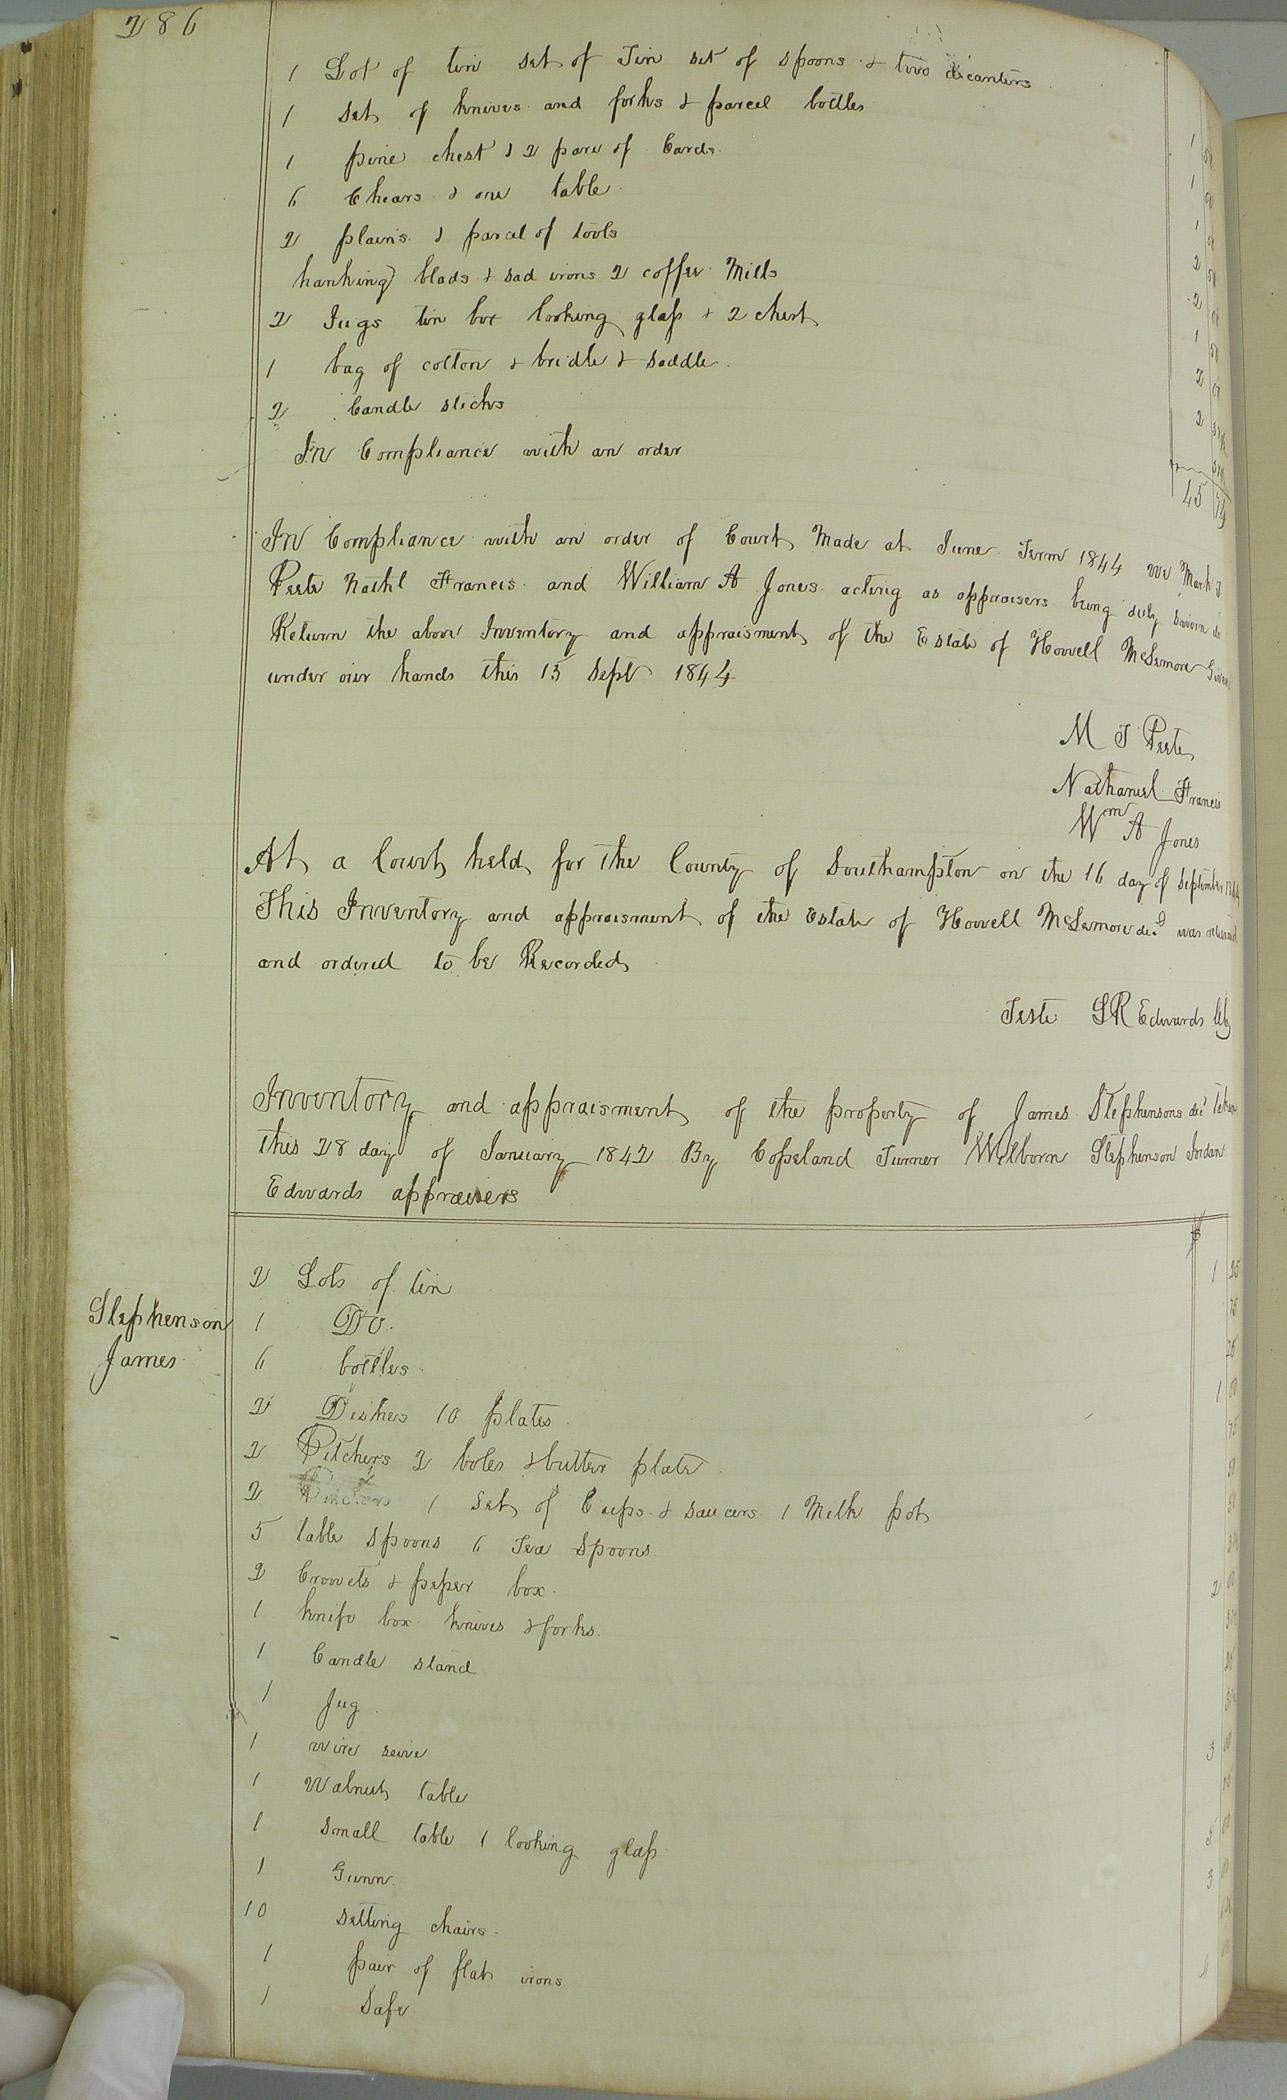 286
1 Lot of tin set of Tin set of spoons & two decanters
1 set of knives and forks & parcel bottles
1 pine chest & 2 pare of Cards
6 Chears & one table
2 plains & parcel of tools
hanking blads & sad irons 2 coffee Mills
2 Jugs tin box looking glass & 2 chest
1 bag of cotton & bridle & saddle
2 Candle sticks
In Compliance with an order
45 74
In Compliance with an order of Court Made at June Term 1844 we Mark J
Peete Nathl Francis and William A Jones acting as appraisers being duly sworn do
Return the above Inventory and appraisment of the Estate of Howell McLemore Given
under our hands this 15 Sept 1844
M J Peete
Nathaniel Francis
Wm A Jones
At a Court held for the County of Southampton on the 16 day of September 1844
This Inventory and appraisment of the Estate of Howell McLemore decd was returned
and ordered to be Recorded
Teste L R Edwards Clk
Inventory and appraisment of the property of James Stephensons decd Taken
this 28 day of January 1842 By Copeland Turner Welborn Stephenson Jordan
Edwards appraisers
$
Stephenson
James
2 Lots of tin 1 25
1 Do. 75
6 bottles 25
2 Dishes 10 plates 1 00
2 Pitchers 2 boles & butter plate
2 1 set of Cups & saucers 1 Milk pot
5 table spoons 6 Tea Spoons
2 Crowets & peper box
1 knife box knives & forks
1 Candle stand
1 Jug
1 wire seive
1 Walnut table
1 small table 1 looking glass
1 Gunn
10 setting chairs
1 pair of flat irons
1 Safe